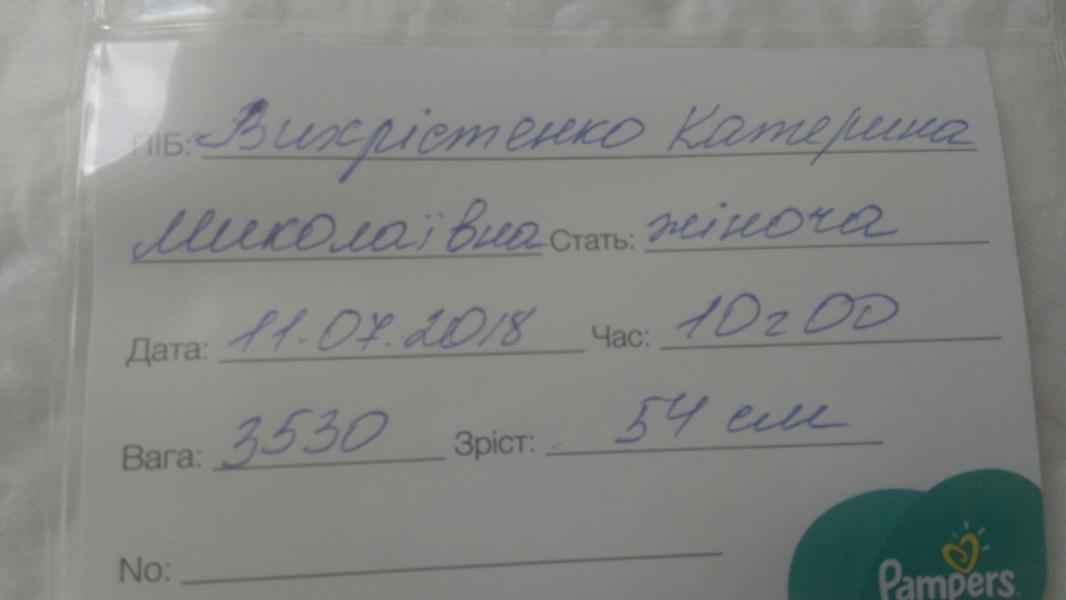 ПІБ: Вихрістенко Катерина
Миколаївна Стать: жіноча
Дата: 11.07.2018 Час: 10г00
Вага: 3530 Зріст: 54 см
No:
Pampers